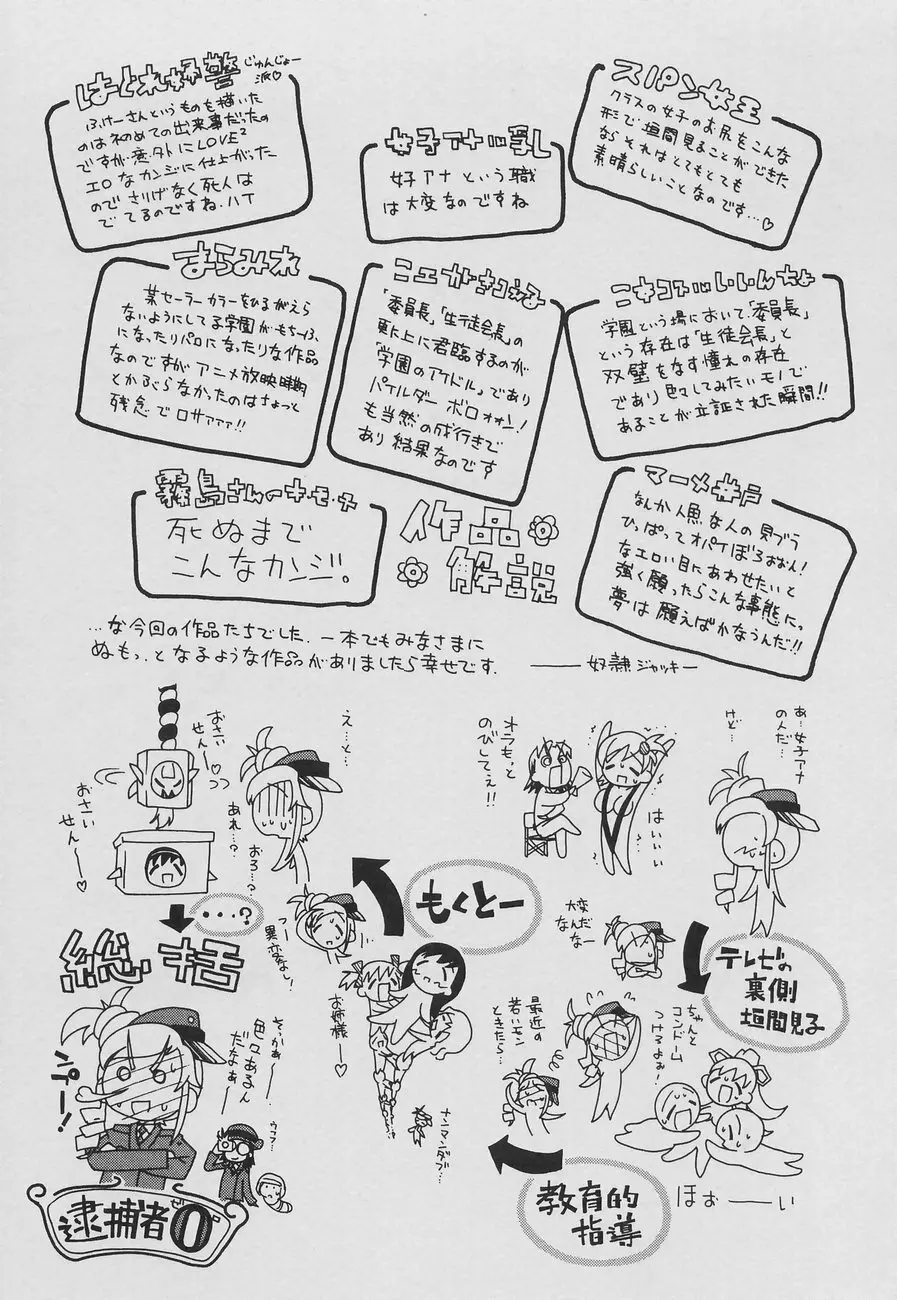 はぐれ婦警
じゅんじょー
派♡
ふけーさんというものを描いた
のは初めての出来事だったの
ですが意外にLOVE²
エロなカンジに仕上がった
のでさりげなく死人は
でてるのですね、ハイ
女子アナ
女子アナという職
は大変なのですね
スパン女王
クラスの女子のお尻をこんな
形で垣間見ることができた
ならそれはとてもとても
素晴らしいことなのです…♡
まらみれ
某セーラーカラーをひるがえら
ないようにしてる学園がもちーふ
になったりパロになったりな作品
なのですがアニメ放映時期
とかぶらなかったのはちょっと
残念でロサァァァ!!
コエがきこえる
「委員長」「生徒会長」の
更に上に君臨するのが
「学園のアイドル」であり
パイルダーボロォォン!
も当然の成行きで
あり結果なのです
いいんちょ
学園という場において「委員長」
という存在は「生徒会長」と
双璧をなす憧れの存在
であり色々してみたいモノで
あることが立証された瞬間!!
霧島さんのキ・モ・チ
死ぬまで
こんなカンジ。
作品
解説
マーメ井戸
なんか人魚な人の貝ブラ
ひっぱってオパイぼろおおん!
なエロい目にあわせたいと
強く願ったらこんな事態にっ
夢は願えばかなうんだ!!
…な今回の作品たちでした。一本でもみなさまに
ぬもっ、となるような作品がありましたら幸せです。
――奴隷ジャッキー
あ…女子アナ
のんだ…
けど…
オラもっと
のびしてぇ!!
はいいい
大変だ
なんなー
テレビの
裏側
垣間見子
ちゃんと
コンドーム
つけるよぉ!
ほぉーーい
教育的
指導
最近の
若いモン
ときたら…
ナンマンダブ…
お姉様ー♡
っー
異変なし!
もくとー
え…と…
あれ…?
おろ…?
おさい
せんー♡
おさい
せんー♡
…?
総括
そっかぁー
色々あるん
だなぁー
ウフフ
逮捕者
ゼロ
0